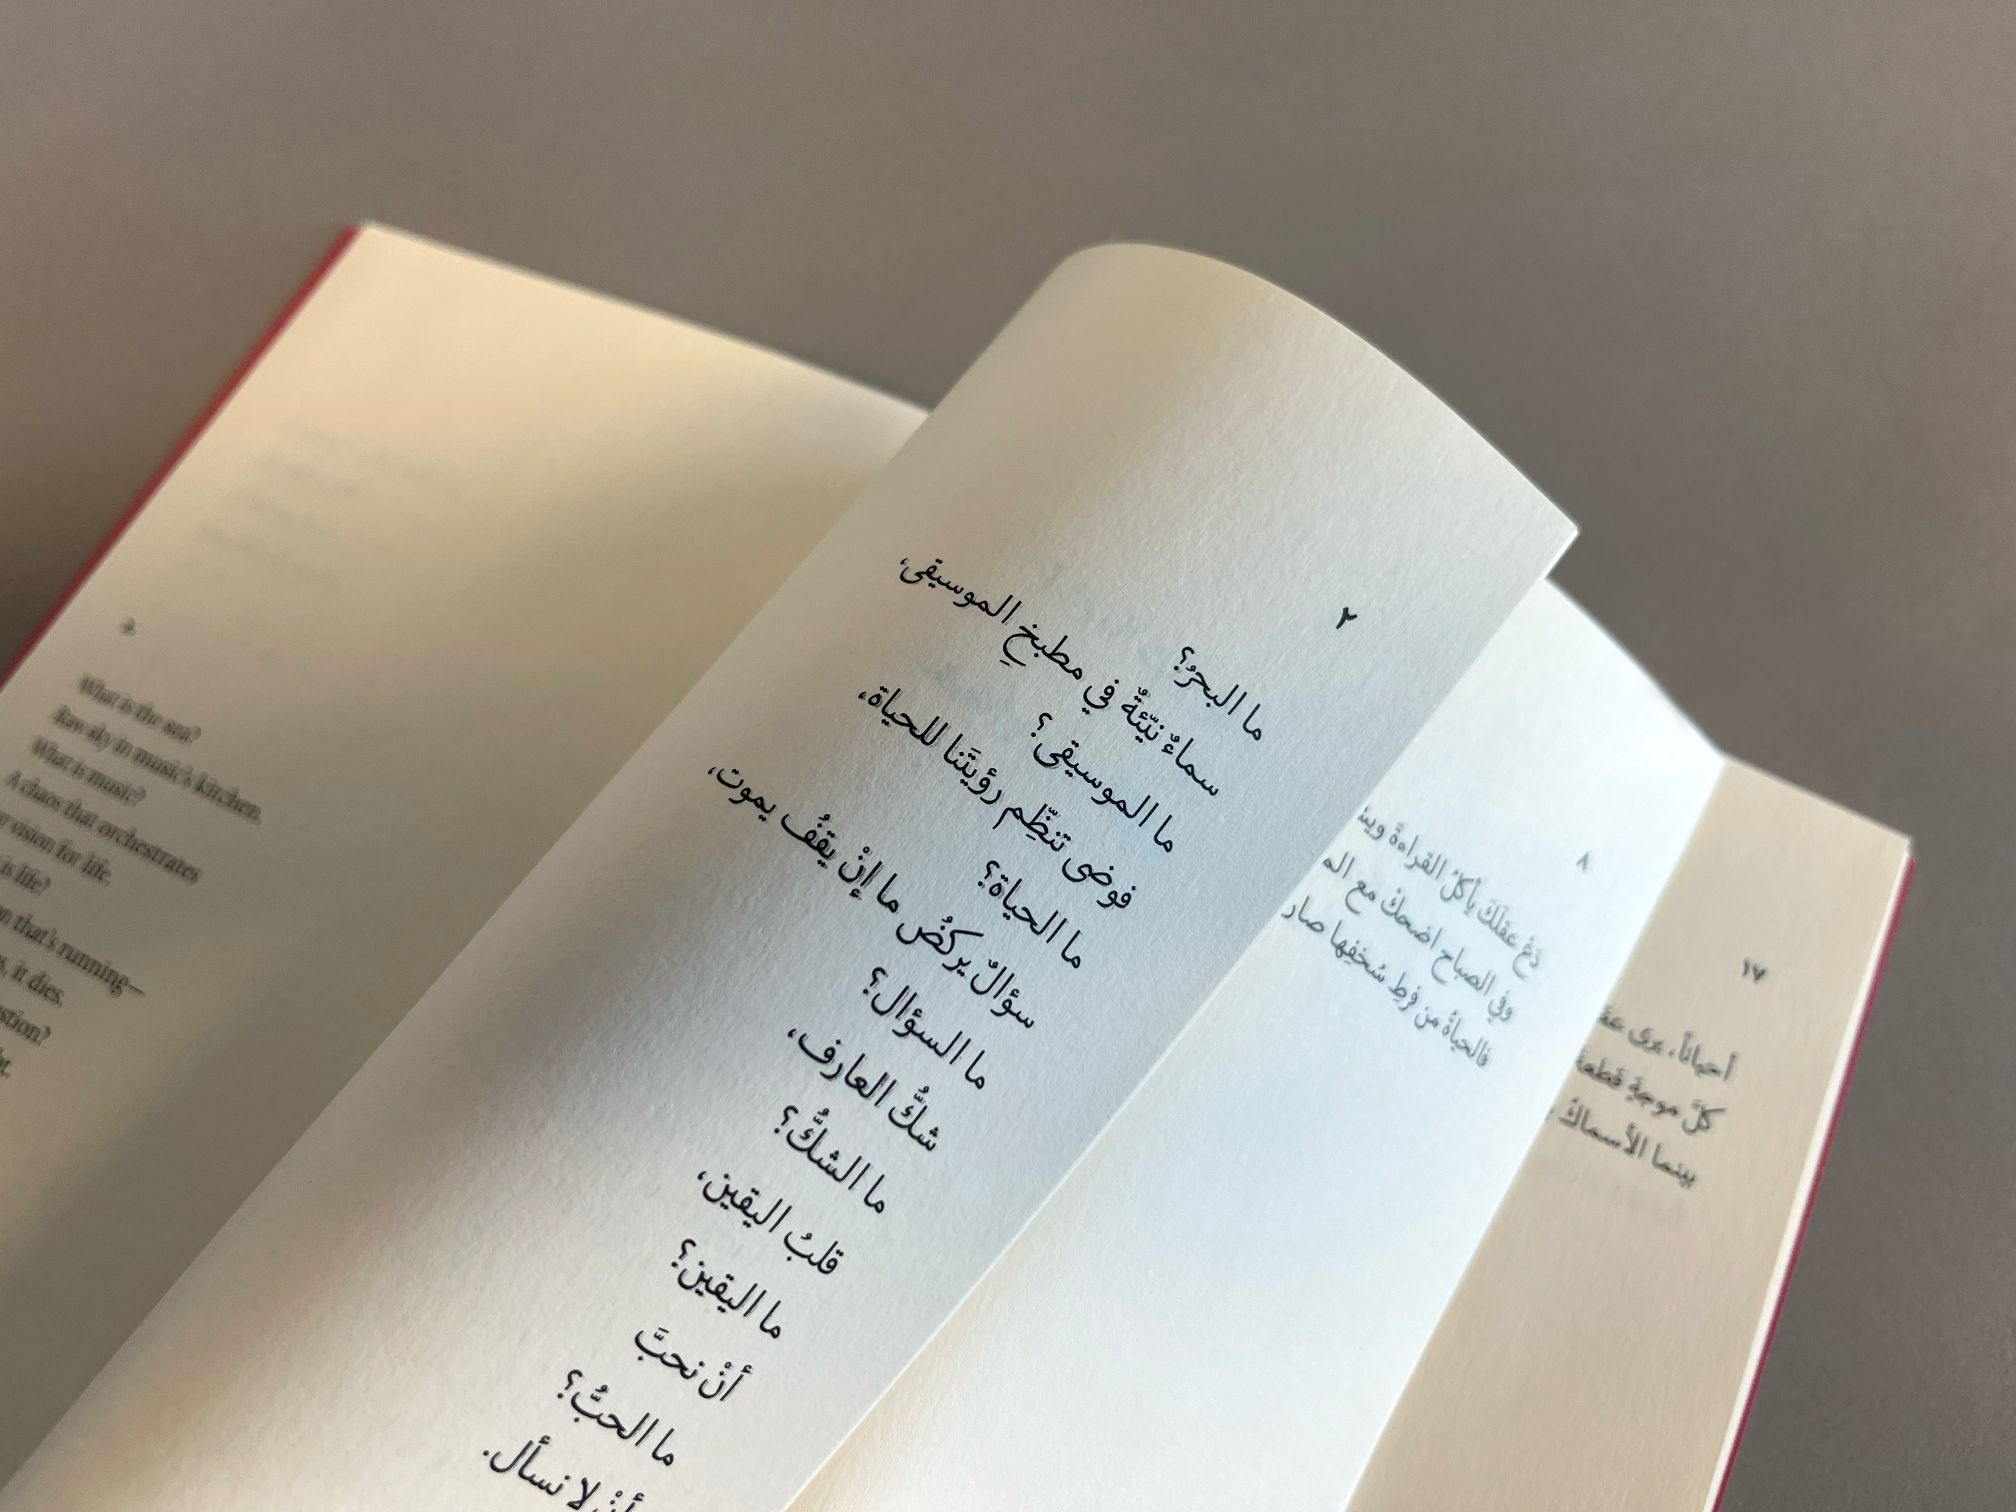 2
What is the sea?
Raw sky in music's kitchen.
What is music?
A chaos that orchestrates
vision for life.
is life?
that's running—
it dies.
٢
ما البحرُ؟
سماءٌ نيّئةٌ في مطبخِ الموسيقى،
ما الموسيقى؟
فوضى تنظِّم رؤيتَنا للحياة،
ما الحياة؟
سؤالٌ يركضُ ما إنْ يقفُ يموت،
ما السؤال؟
شكُّ العارف،
ما الشكُّ؟
قلبُ اليقين،
ما اليقين؟
أنْ نحبَّ
ما الحبُّ؟
أنْ لا نسأل.
٨
دَعْ عقلَكَ يأكلُ القراءةَ
وفي الصباح اضحكْ مع
فالحياةُ من فرطِ سُخفِها صار
١٧
أحياناً، يرى
كلَّ موجةٍ قطعة
بينما الأسماكُ